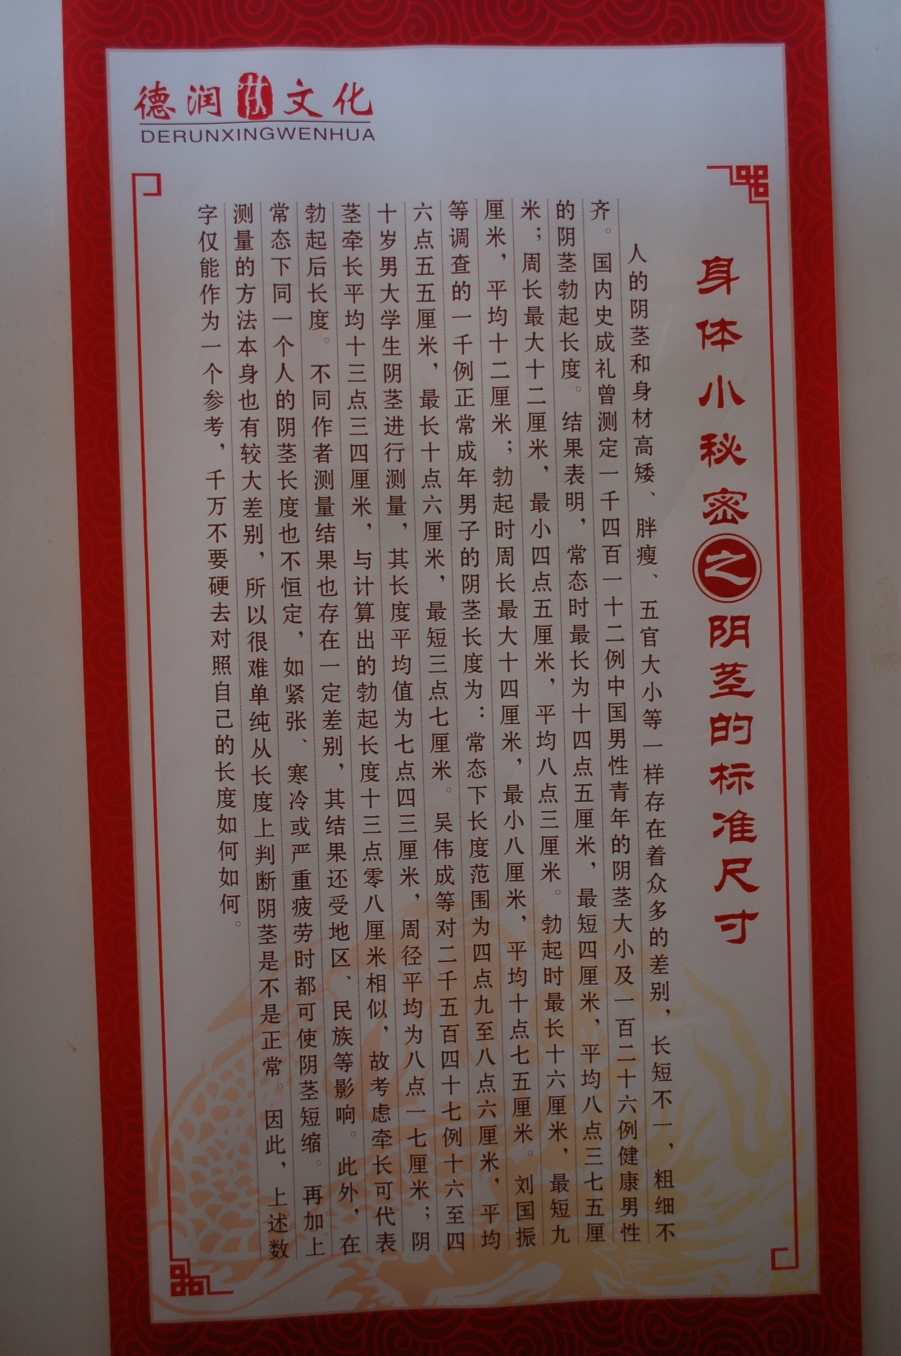 德润性文化
DERUNXINGWENHUA
身体小秘密之阴茎的标准尺寸
人的阴茎和身材高矮、胖瘦、五官大小等一样存在着众多的差别，长短不一，粗细不
齐。国内史成礼曾测定一千四百一十二例中国男性青年的阴茎大小及一百二十六例健康男性
的阴茎勃起长度。结果表明，常态时最长为十四点五厘米，最短四厘米，平均八点三七五厘
米；周长最大十二厘米，最小四点五厘米，平均八点三厘米。勃起时最长十六厘米，最短九
厘米，平均十二厘米；勃起时周长最大十四厘米，最小八厘米，平均十点七五厘米。刘国振
等调查的一千例正常成年男子的阴茎长度为：常态下长度范围为四点九至八点六厘米，平均
六点五五厘米，最长十点六厘米，最短三点七厘米。吴伟成等对二千五百四十七例十六至四
十岁男大学生阴茎进行测量，其长度平均值为七点四三厘米，周径平均为八点一七厘米；阴
茎牵长平均十三点三四厘米，与计算出的勃起长度十三点零八厘米相似，故考虑牵长可代表
勃起后长度。不同作者测量结果也存在一定差别，其结果还受地区、民族等影响。此外，在
常态下同一个人的阴茎长度也不恒定，如紧张、寒冷或严重疲劳时都可使阴茎短缩。再加上
测量的方法本身也有较大差别，所以很难单纯从长度上判断阴茎是不是正常。因此，上述数
字仅能作为一个参考，千万不要硬去对照自己的长度如何如何。